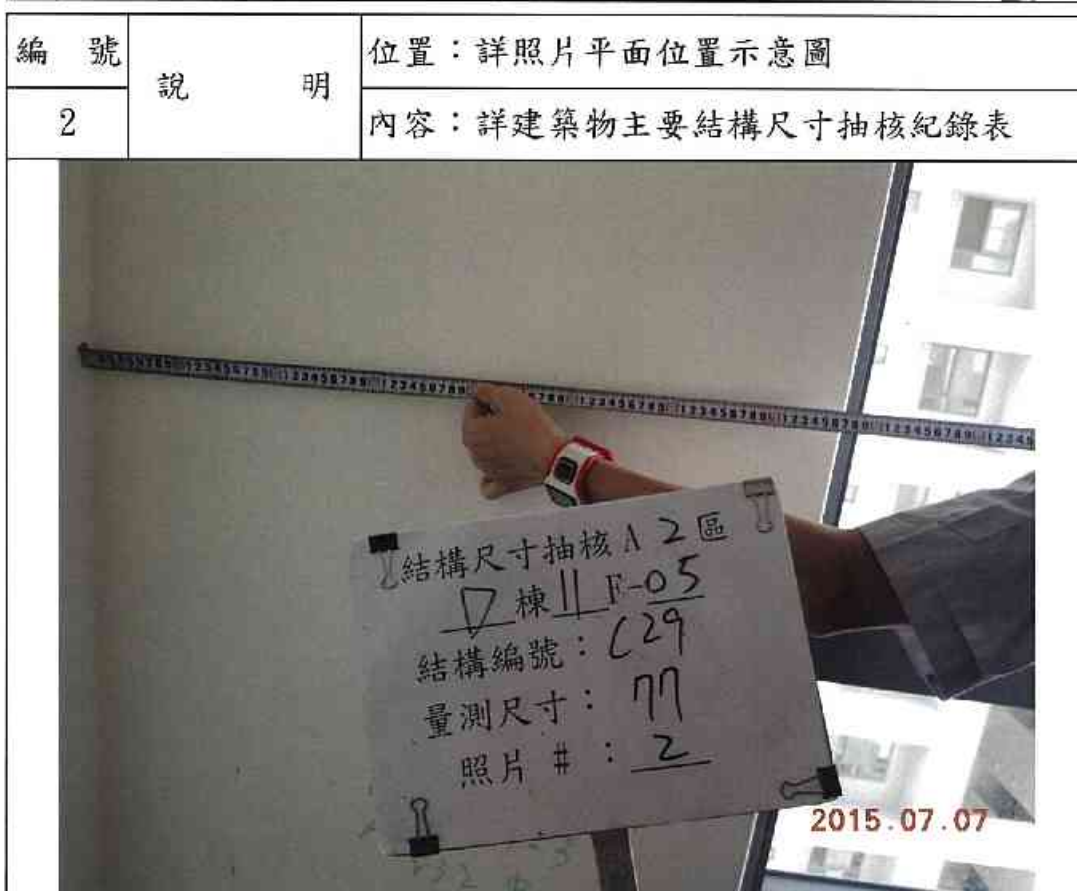 編 號
說 明
位置：詳照片平面位置示意圖
2
內容：詳建築物主要結構尺寸抽核紀錄表
結構尺寸抽核 A 2 區
D 棟 11 F-05
結構編號：C29
量測尺寸：77
照片 #：2
2015.07.07